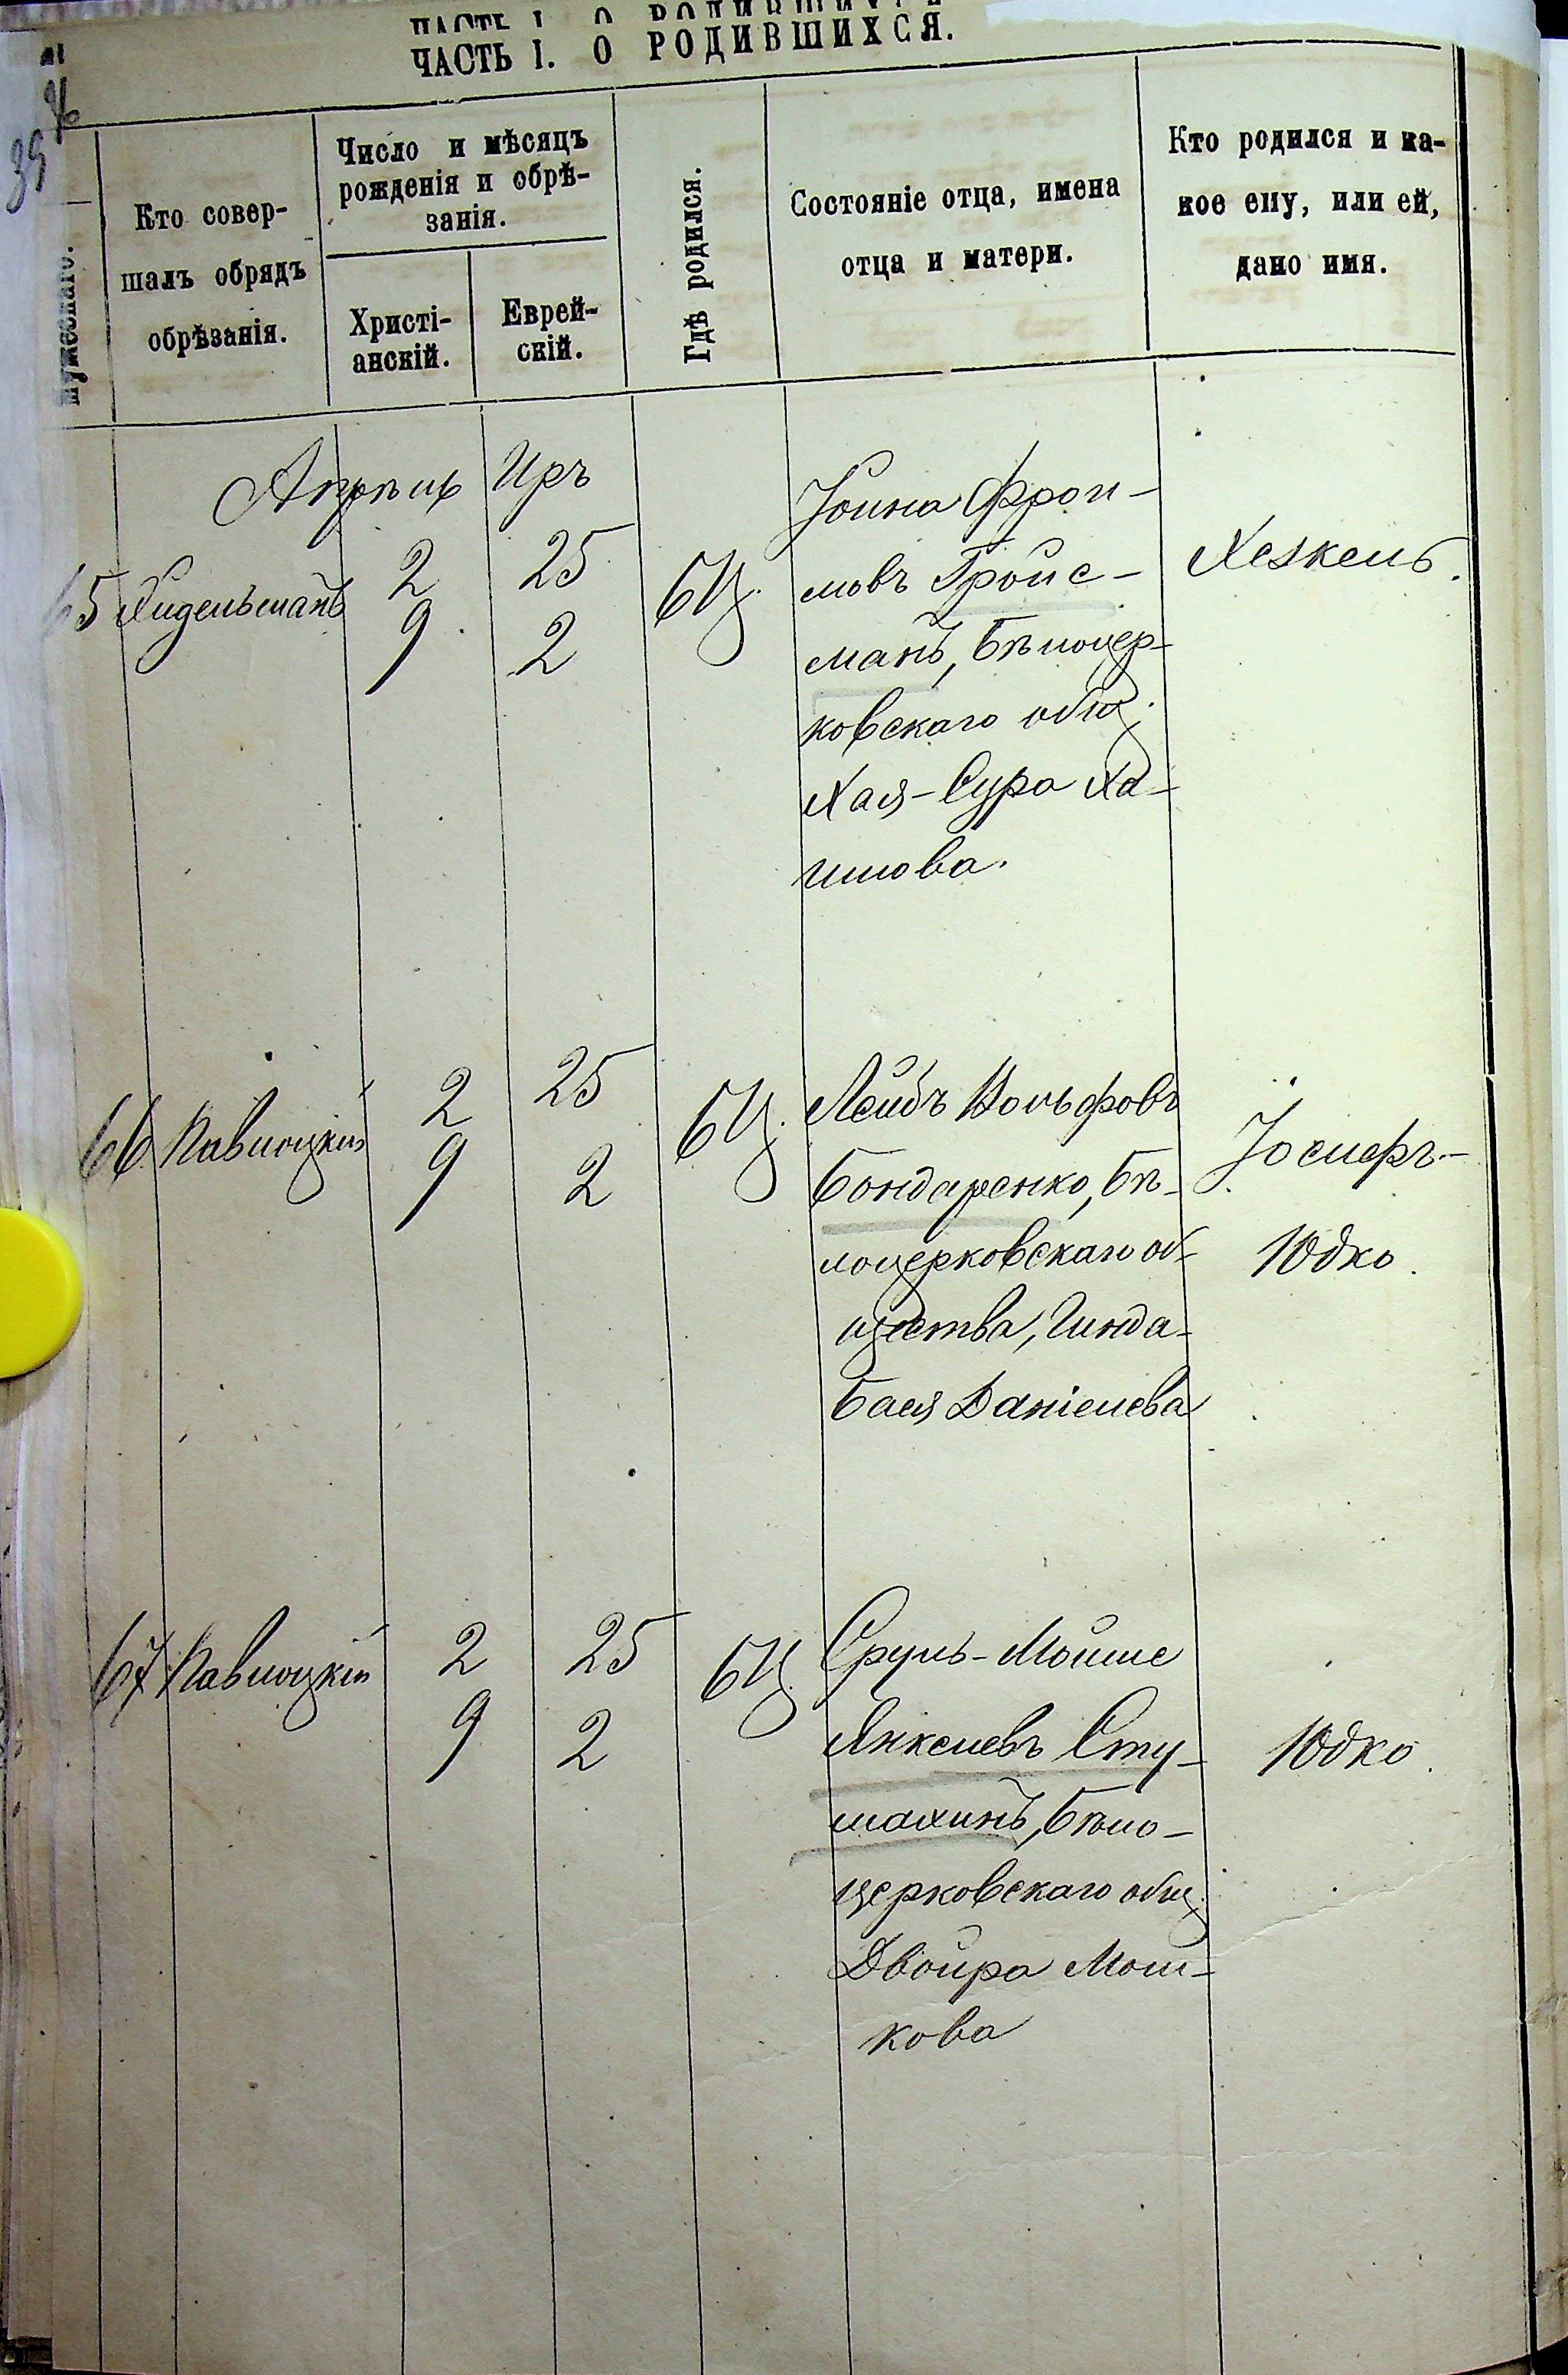 ЧАСТЬ I. О РОДИВШИХСЯ.
Кто совер-
шалъ обрядъ
обрѣзанія.
Число и мѣсяцъ
рожденія и обрѣ-
занія.
Христі-
анскій.
Еврей-
скій.
Гдѣ родился.
Состояніе отца, имена
отца и матери.
Кто родился и ка-
кое ему, или ей,
дано имя.
Апрѣль Иръ
65
2 25
9 2
БЦ.
Іойна Фрои-
мовъ Гройс-
манъ, Бѣлоцер-
ковскаго общ.
Хая-Сура Ха-
имова.
Хезкель.
66 Павлоцкій
2 25
9 2
БЦ.
Лейбъ Вольфовъ
Бондаренко, Бѣ-
лоцерковскаго об-
щества, Гинда-
Бася Даніелева
Іосифъ-
Юдко.
67 Павлоцкій
2 25
9 2
БЦ
Сруль-Мойше
Янкелевъ Сту-
махинъ, Бѣло-
церковскаго общ.
Двойра Мош-
кова
Юдко.